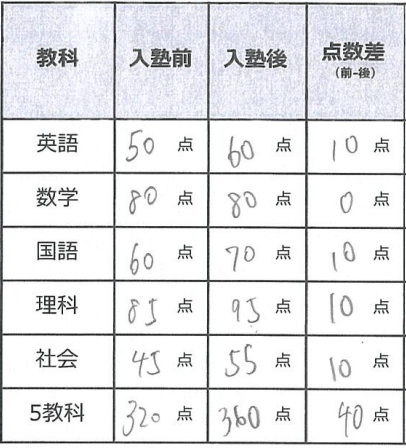 教科 入塾前 入塾後 点数差
(前-後)
英語 50 点 60 点 10 点
数学 80 点 80 点 0 点
国語 60 点 70 点 10 点
理科 85 点 95 点 10 点
社会 45 点 55 点 10 点
5教科 320 点 360 点 40 点